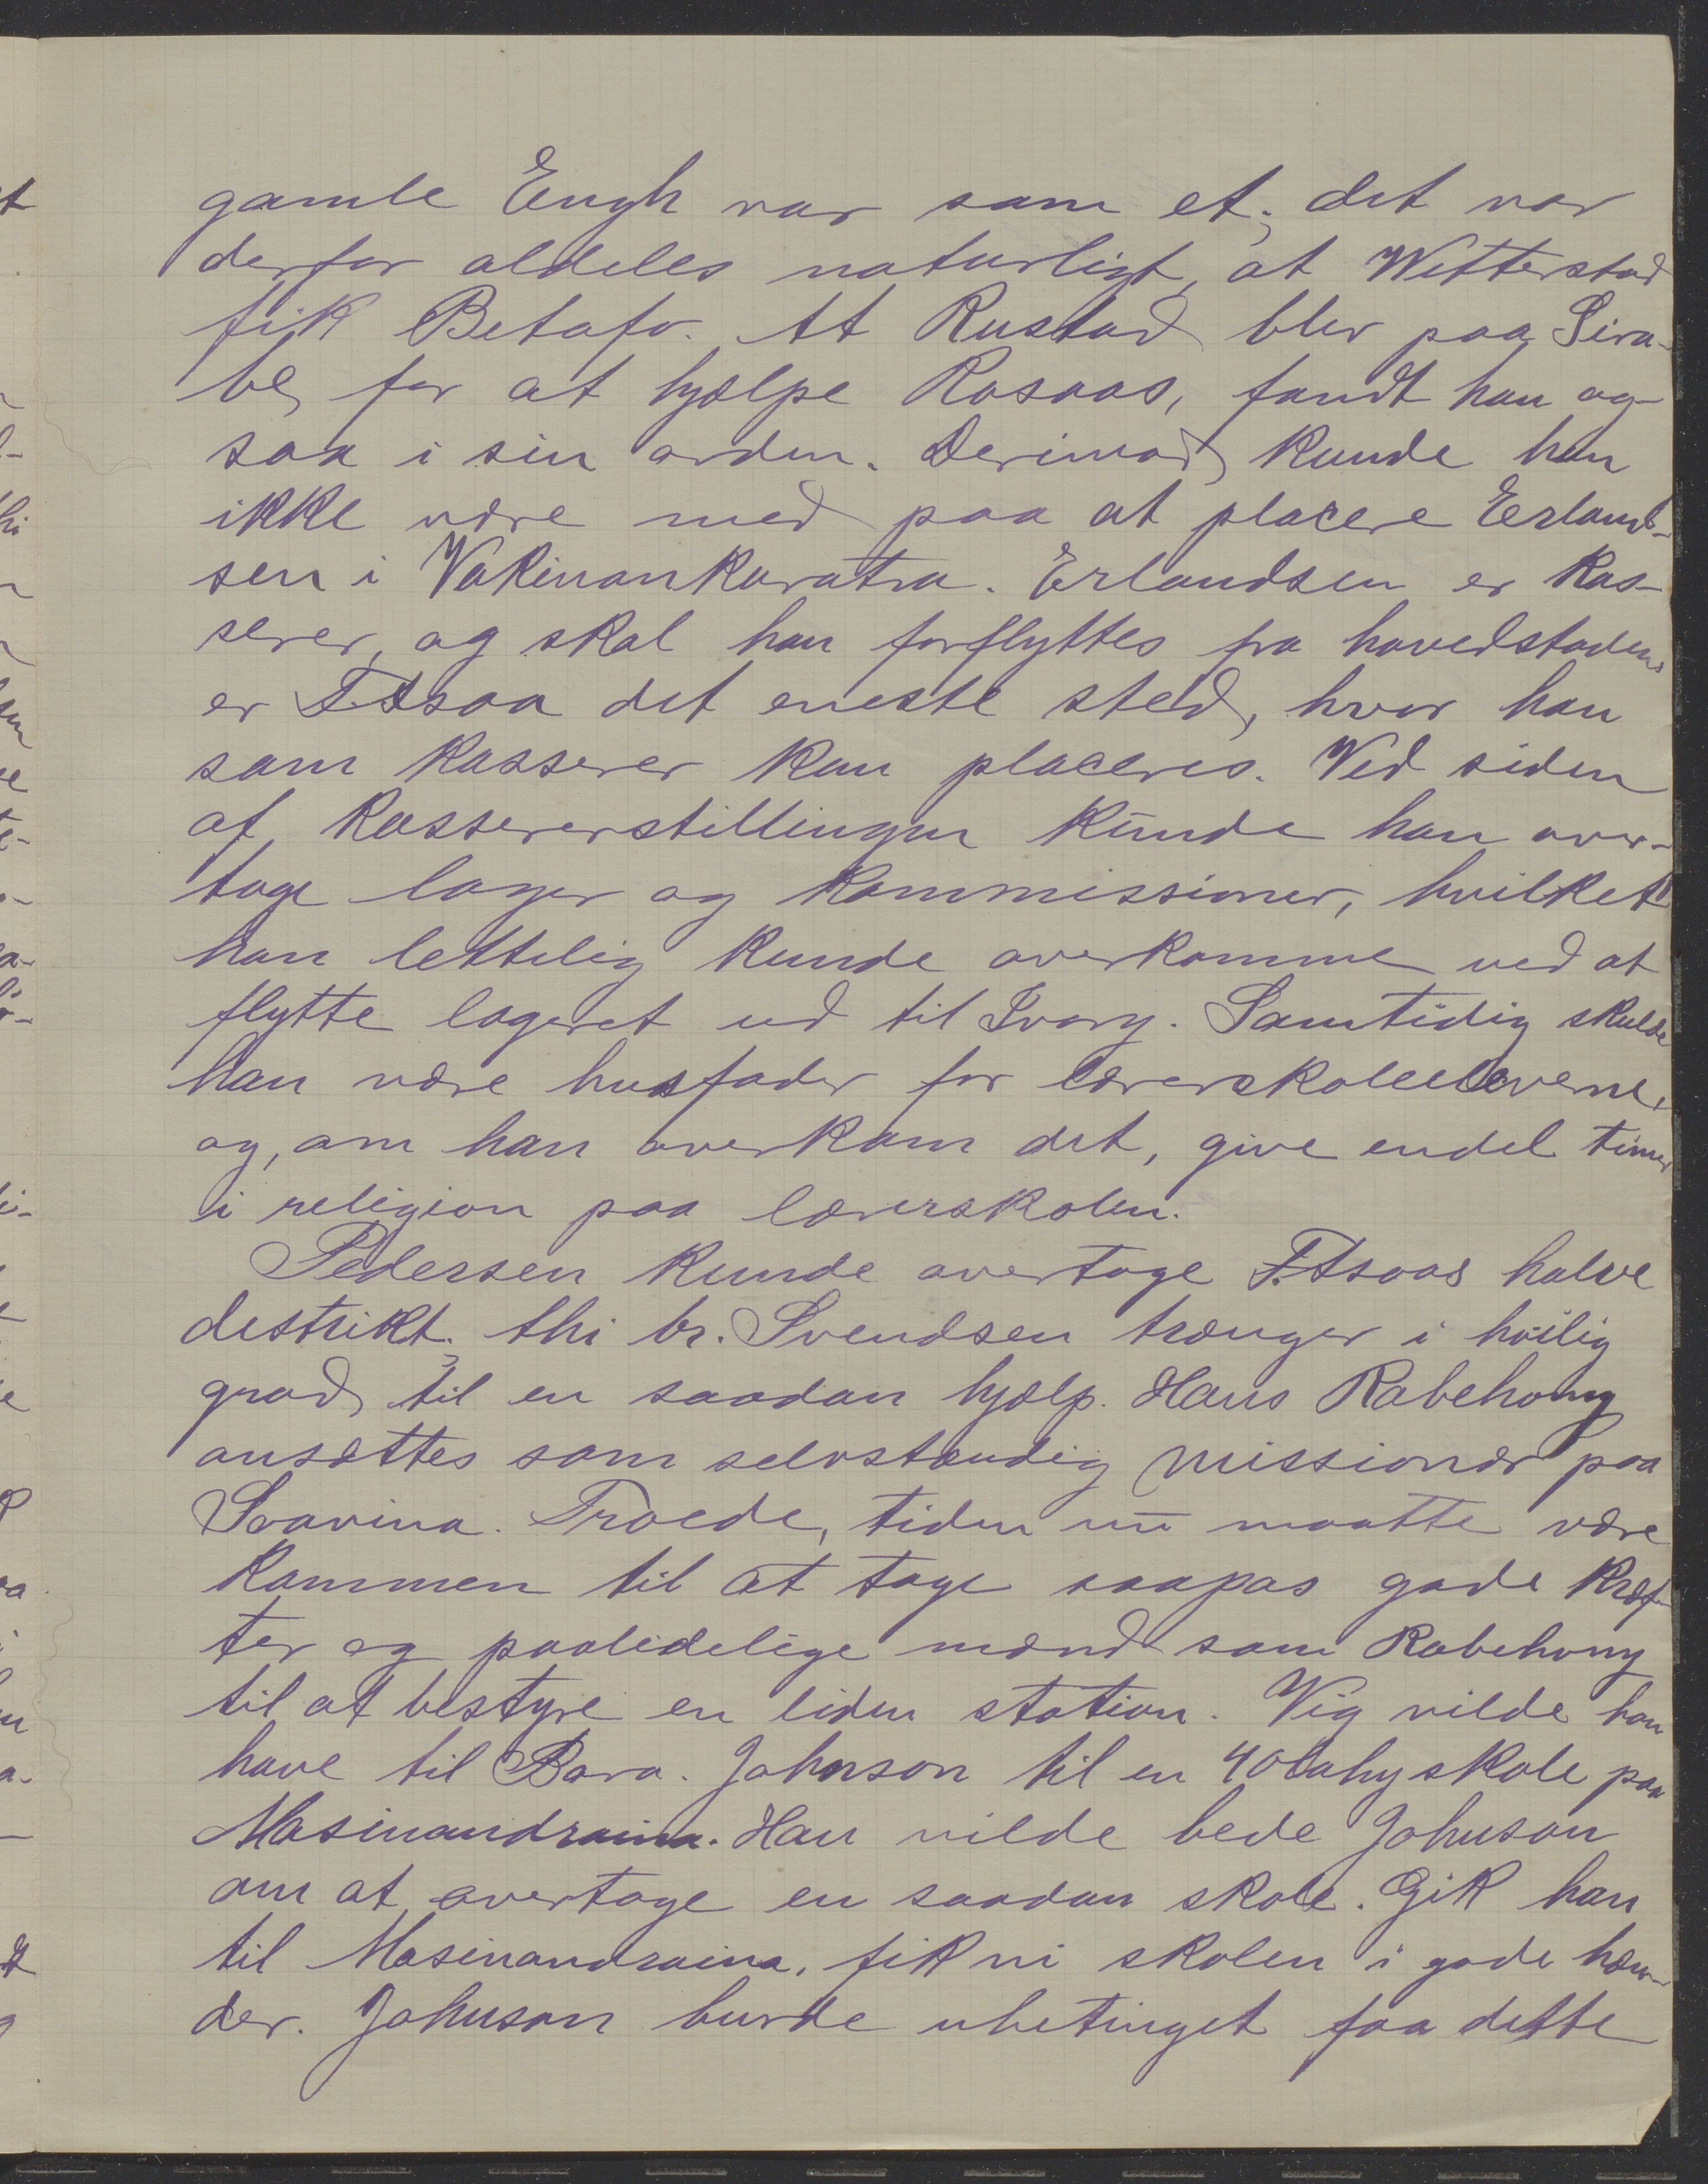 gamle Engh var som et; det var
derfor aldeles naturligt, at Wetterstad
fik Betafo. At Rustad blev paa Sira-
be, for at hjælpe Rosaas, fandt han og-
saa i sin orden. Derimod kunde han
ikke være med paa at placere Erland-
sen i Vakinankaratra. Erlandsen er kas-
serer, og skal han forflyttes fra hovedstaden,
er F.tsoa det eneste sted, hvor han
som kasserer kan placeres. Ved siden
af kassererstillingen kunde han over-
tage lager og kommissioner, hvilket
han lettelig kunde overkomme ved at
flytte lageret ud til Ivory. Samtidig skulde
han være husfader for lærerskoleeleverne,
og, om han overkom det, give endel timer
i religion paa lærerskolen.
Pedersen kunde overtage F.tsoas halve
destrikt; thi br. Svendsen trænger i høilig
grad til en saadan hjælp. Hans Rabehony
ansættes som selvstændig missionær paa
Soavina. Troede, tiden nu maatte være
kommen til at tage saapas gode kræf-
ter og paalidelige mænd som Rabehony
til at bestyre en liden station. Vig vilde han
have til Bara. Johnson til en 40lahyskole paa
Masinandraina. Han vilde bede Johnson
om at overtage en saadan skole. Gik han
til Masinandraina, fik vi skolen i gode hæn-
der. Johnson burde ubetinget faa dette